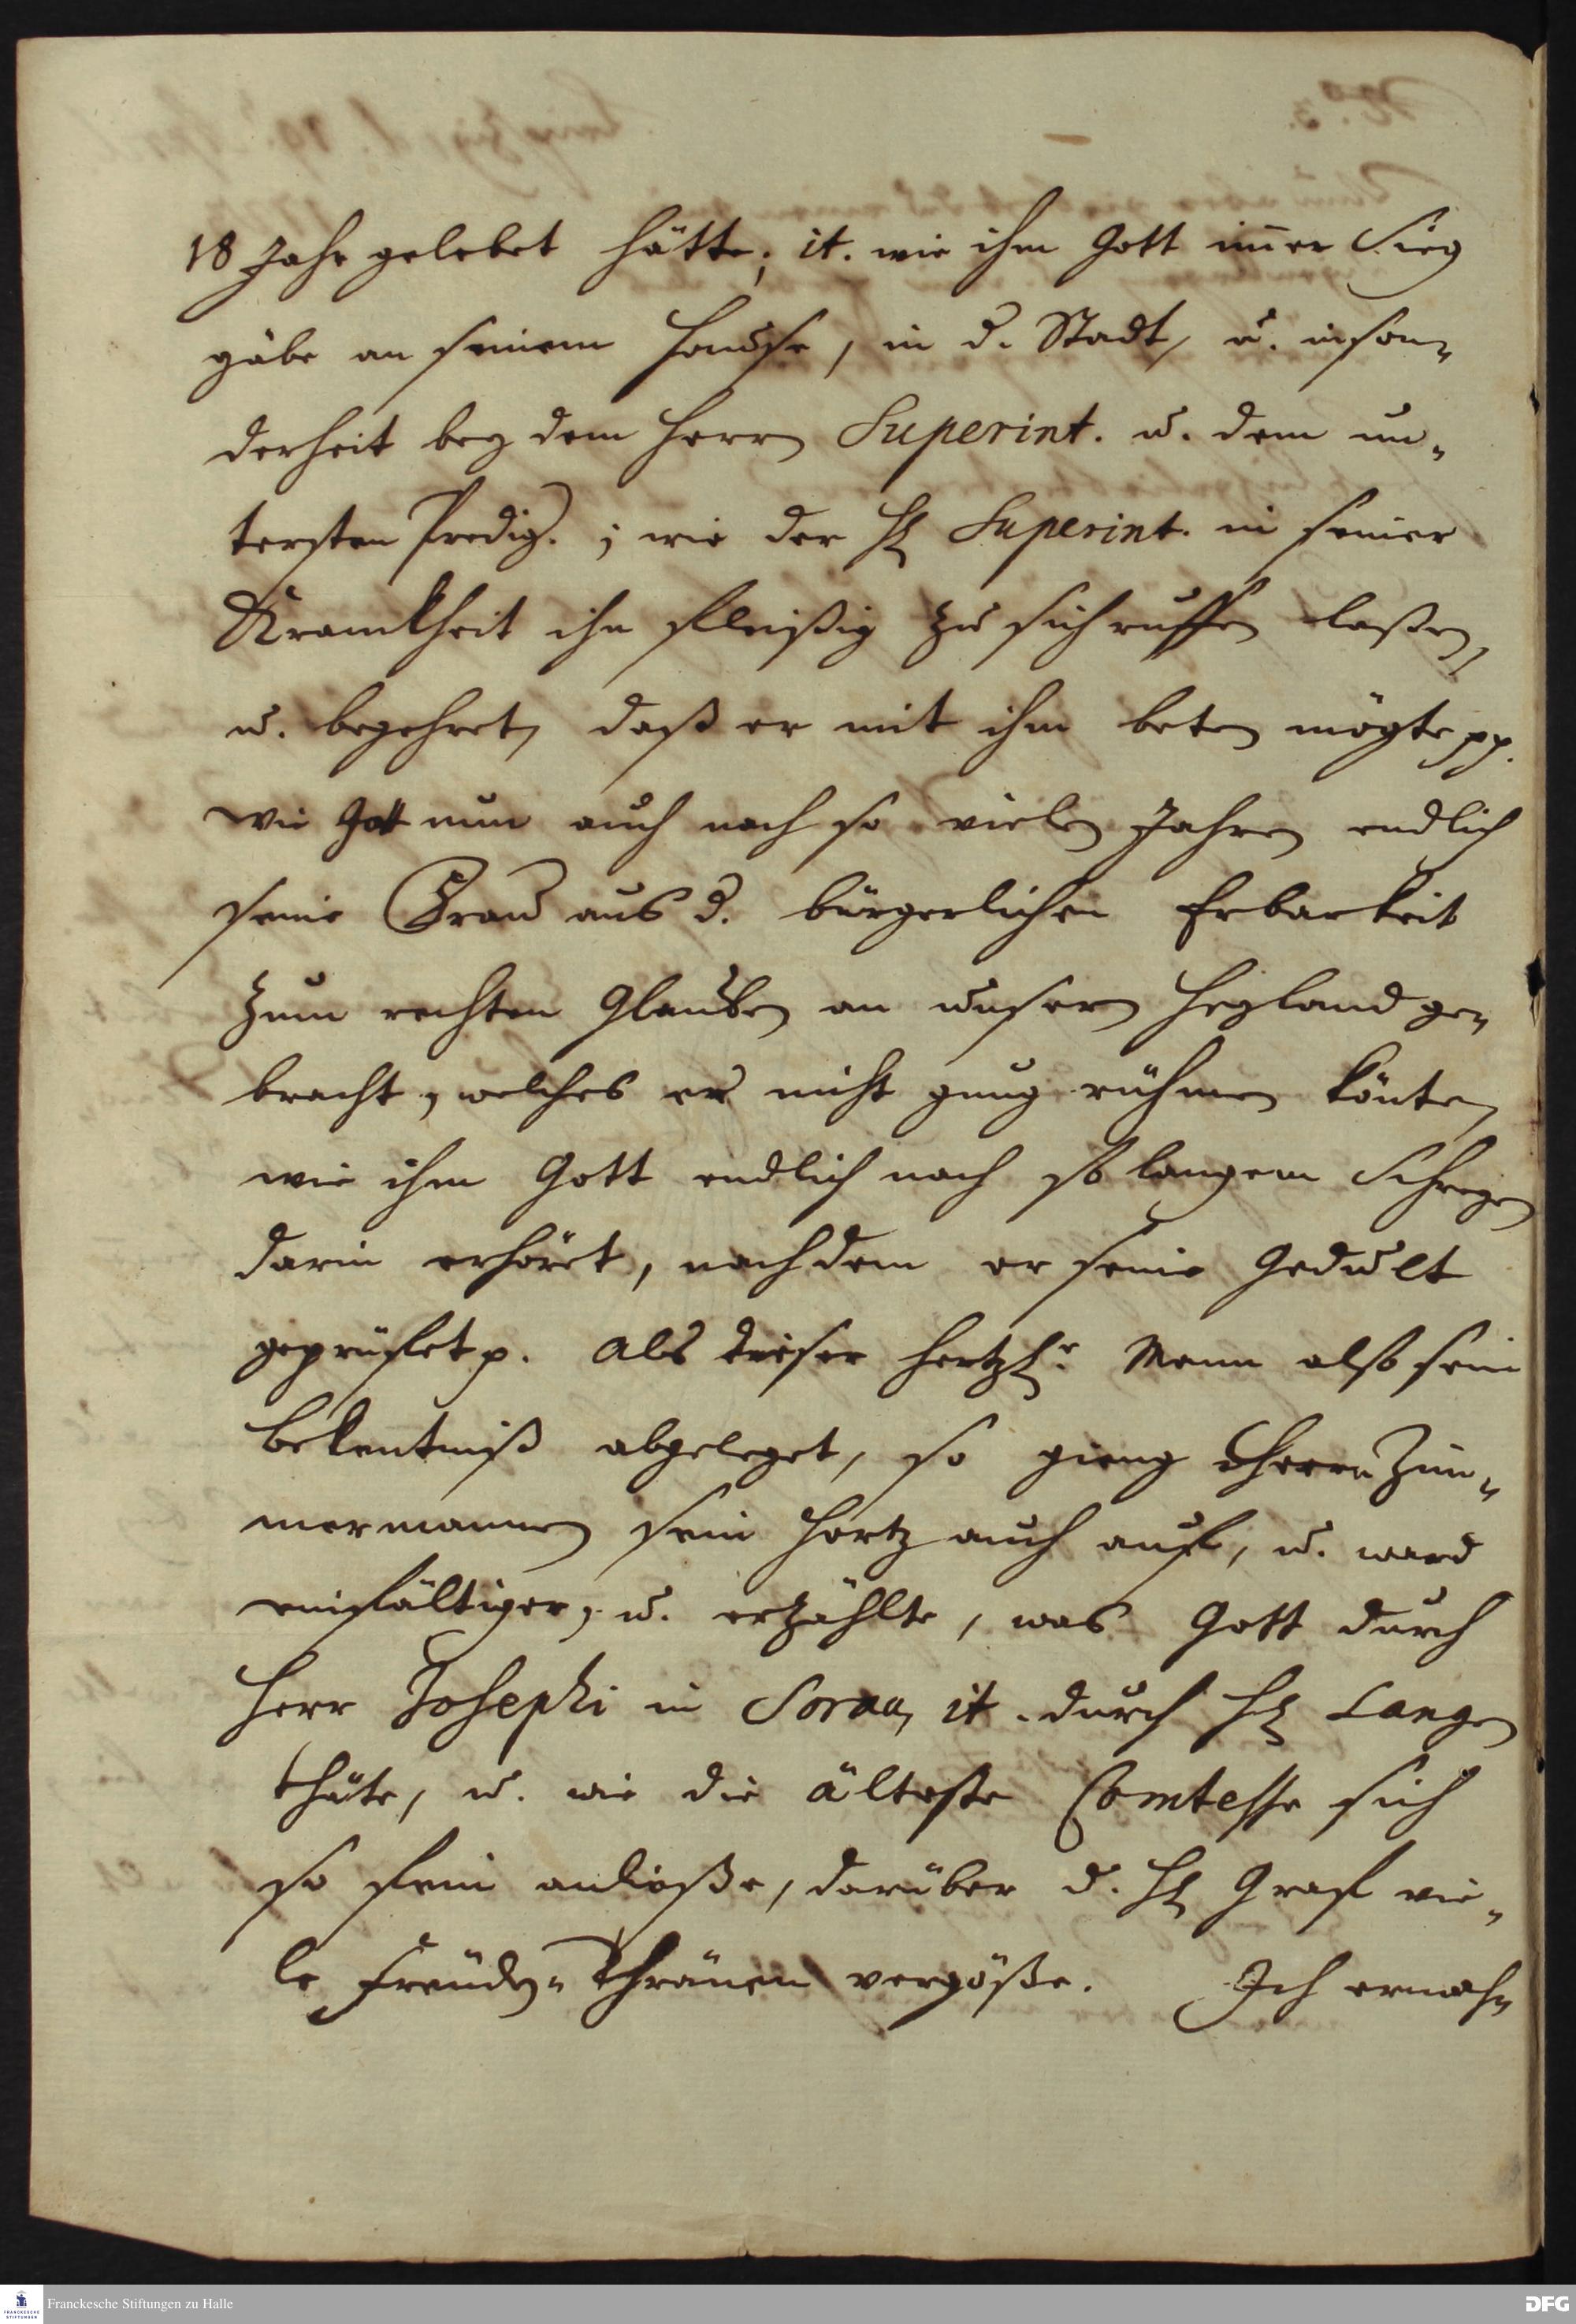 18 Jahr gelebet hätte; it. wie ihm Gott im̄er Sieg
gäbe an seinem Hause, in d. Stadt, u. inson-
derheit bey dem Herrn Superint. u. dem un-
tersten Predig.; wie der H. Superint. in seiner
Kranckheit ihn fleißig zu sich ruffen laßen,
u. begehret, daß er mit ihm beten mögte pp.
wie Gott nun auch nach so vielen Jahren endlich
seine Frau aus d. bürgerlichen Erbarkeit
zum rechten Glauben an unsern Heyland ge-
bracht, welches er nicht gnug rühmen könte,
wie ihm Gott endlich nach so langem Schreyen
darin erhöret, nachdem er seine Gedult
geprüfet p. Als dieser Mann also sein
bekentniß abgeleget, so gieng Herrn Zim-
mermannen sein Hertz auch auf, u. ward
einfältiger, u. erzählte, was Gott durch
Herr Josephi in Sorau, it. durch H. Langen
thäte, u. wie die älteste Comtesse sich
so fein anließe, darüber d. H. Graf vie-
le Freuden-Thränen vergöße. Ich ermah-
Franckesche Stiftungen zu Halle
DFG